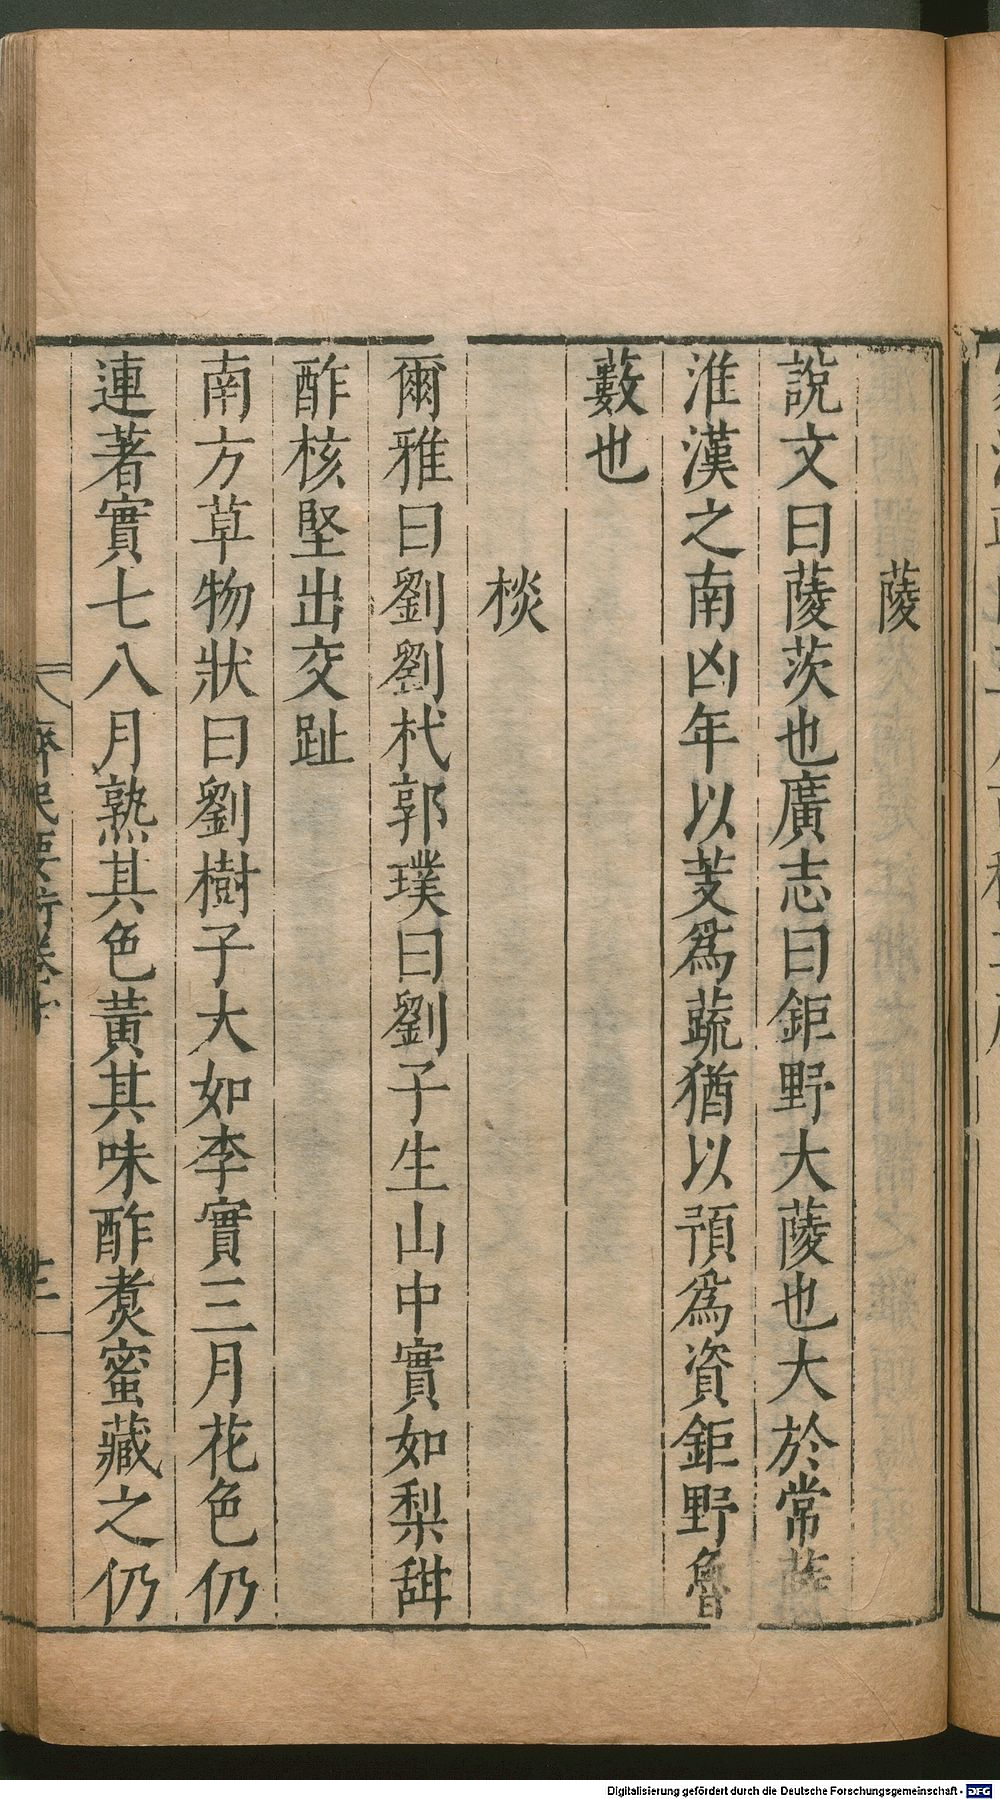 蔆
說文曰蔆茨也廣志曰鉅野大蔆也大於常蔆
淮漢之南凶年以芰爲蔬猶以預爲資鉅野魯
藪也
棪
爾雅曰劉劉杙郭璞曰劉子生山中實如梨甜
酢核堅出交趾
南方草物狀曰劉樹子大如李實三月花色仍
連著實七八月熟其色黃其味酢煑蜜藏之仍
齊民要術卷十
Digitalisierung gefördert durch die Deutsche Forschungsgemeinschaft - DFG